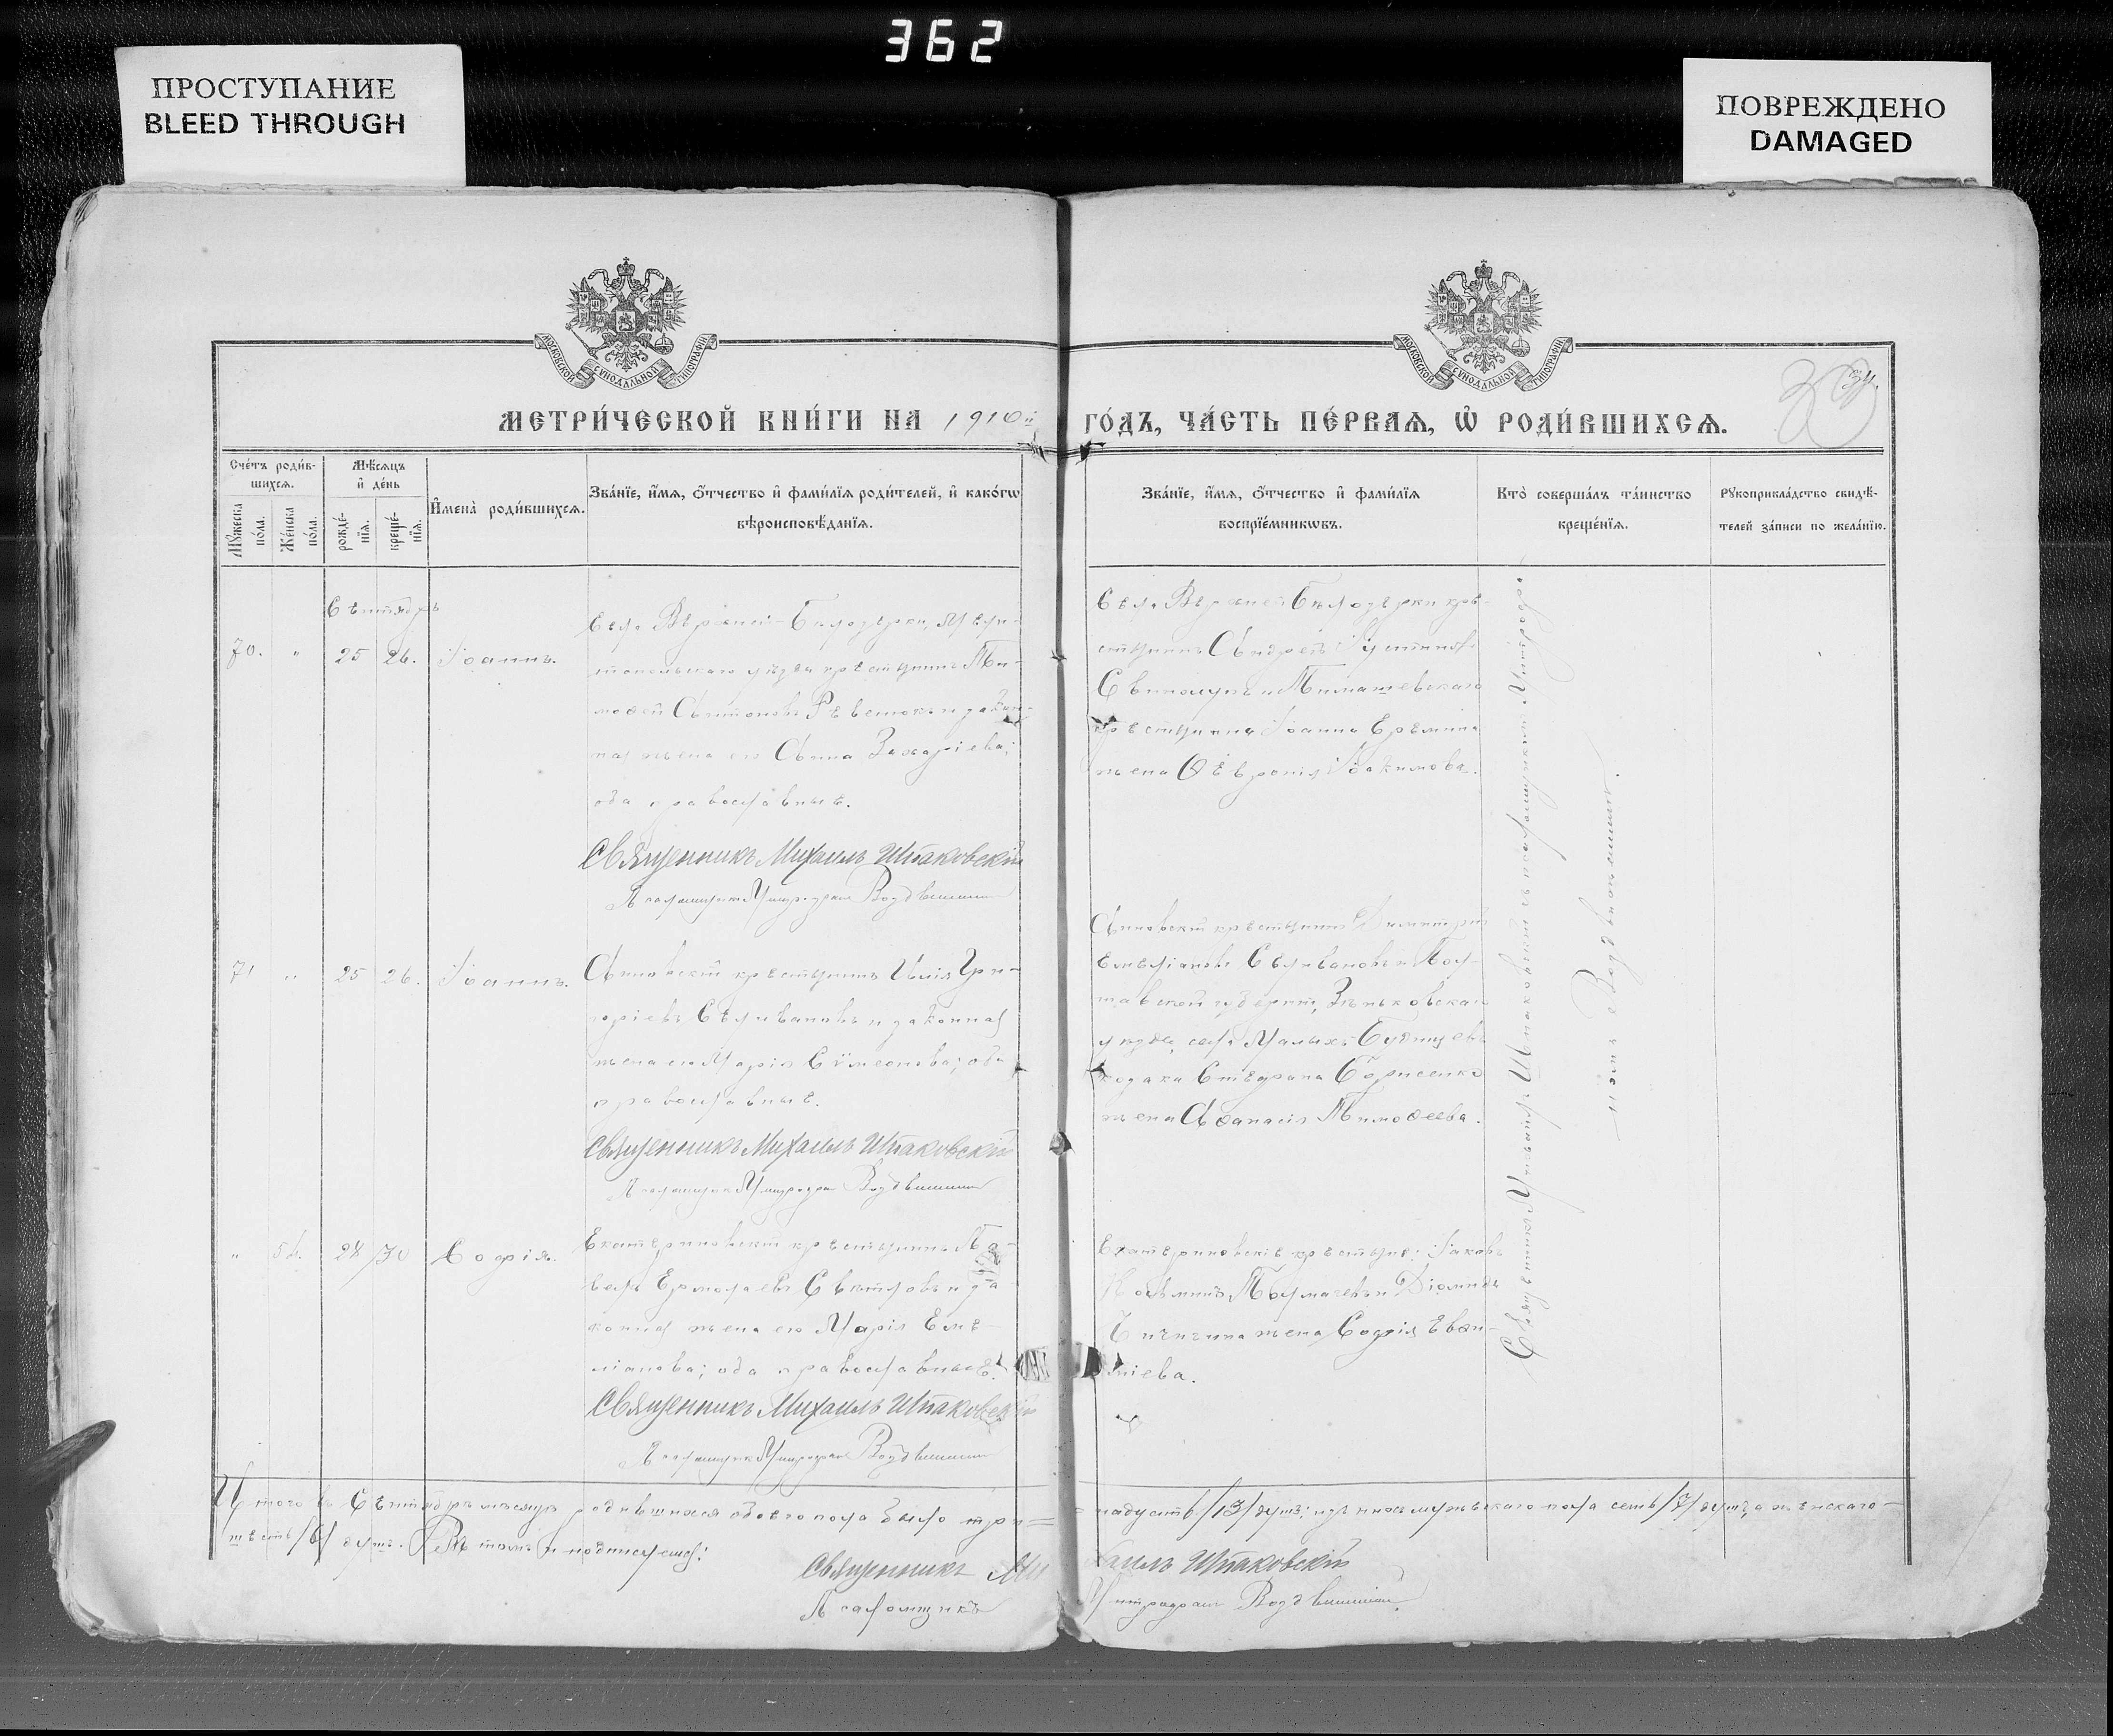 362
ПРОСТУПАНИЕ
BLEED THROUGH
ПОВРЕЖДЕНО
DAMAGED
МОСКОВСКОЙ СѴНОДАЛЬНОЙ ТИПОГРАФІИ
МОСКОВСКОЙ СѴНОДАЛЬНОЙ ТИПОГРАФІИ
МЕТРИ́ЧЕСКОЙ КНИ́ГИ НА 1910й ГО́ДЪ, ЧА́СТЬ ПЕ́РВАѦ, Ѡ҆ РОДИ́ВШИХСѦ.
Сче́тъ роди́в-
шихсѧ.
Мꙋ́жеска по́ла.
Же́нска по́ла.
Мѣ́сѧцъ
и҆ де́нь
рожде́-
нїѧ.
креще́-
нїѧ.
И҆мена̀ роди́вшихсѧ.
Зва́нїе, и҆́мѧ, ѻ҆́тчество и҆ фами́лїѧ роди́телей, и҆ како́гѡ
вѣроисповѣ́данїѧ.
Зва́нїе, и҆́мѧ, ѻ҆́тчество и҆ фами́лїѧ
воспрїе́мникѡвъ.
Кто̀ соверша́лъ та́инство
креще́нїѧ.
Рꙋкоприкла́дство свидѣ́-
телей за́писи по жела́нїю.
Сентябрь
70. " 25 26. Іоаннъ.
Села Верхней-Белозерки, Мели-
топольскаго уѣзда крестьянинъ Ти-
моѳей Антоновъ и закон-
ная жена его Анна Захаріева;
оба православные.
Священникъ Михаилъ Шпаковскій
Псаломщикъ Митрофанъ Воздвиженскій
Села Верхней Белозерки кре-
стьянинъ Андрей
и Тимашевскаго
крестьянина Іоанна Еремина
жена Ѳевронія Іоакимова.
71 " 25 26. Іоаннъ.
Анновскій крестьянинъ Илія Гри-
горіевъ Селивановъ и законная
жена его Марія Сѵмеонова; оба
православные.
Священникъ Михаилъ Шпаковскій
Псаломщикъ Митрофанъ Воздвиженскій
Анновскій крестьянинъ Димитрій
Емеліановъ Селивановъ и Пол-
тавской губерніи, Зеньковскаго
уѣзда, села Малыхъ Будищевъ
козака Стефана Борисенко
жена Аѳанасія Тимоѳеева.
" 28/30 Софія.
Екатериновскій крестьянинъ Па-
велъ Ермолаевъ Светловъ и за-
конная жена его Марія Еме-
ліанова; оба православные.
Священникъ Михаилъ Шпаковскій
Псаломщикъ Митрофанъ Воздвиженскій
Екатериновскіе крестьяне: Іаковъ
Косьминъ Толмачевъ и Діомида
Чичигина жена Софія Евѳи-
міева.
Священникъ Михаилъ Шпаковскій съ псаломщикомъ Митрофа-
номъ Воздвиженскимъ.
Итого въ Сентябрѣ мѣсяцѣ родившихся обоего пола было три-
надцать /13/ душъ; изъ нихъ мужескаго пола семь /7/ душъ, а женскаго
шесть /6/ душъ. Въ томъ и подписуемся:
Священникъ Михаилъ Шпаковскій
Псаломщикъ Митрофанъ Воздвиженскій.